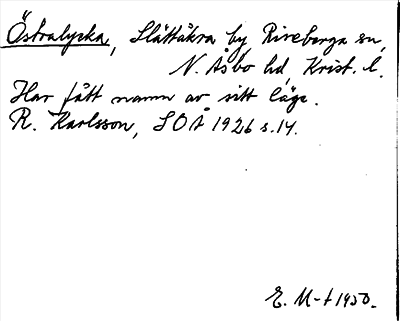 Östralycka, Slättåkra by, Riseberga sn,
N. Åsbo hd, Krist. l.
Har fått namn av sitt läge.
R. Karlsson, SOÅ 1926 s. 14.
E. M-t 1950.